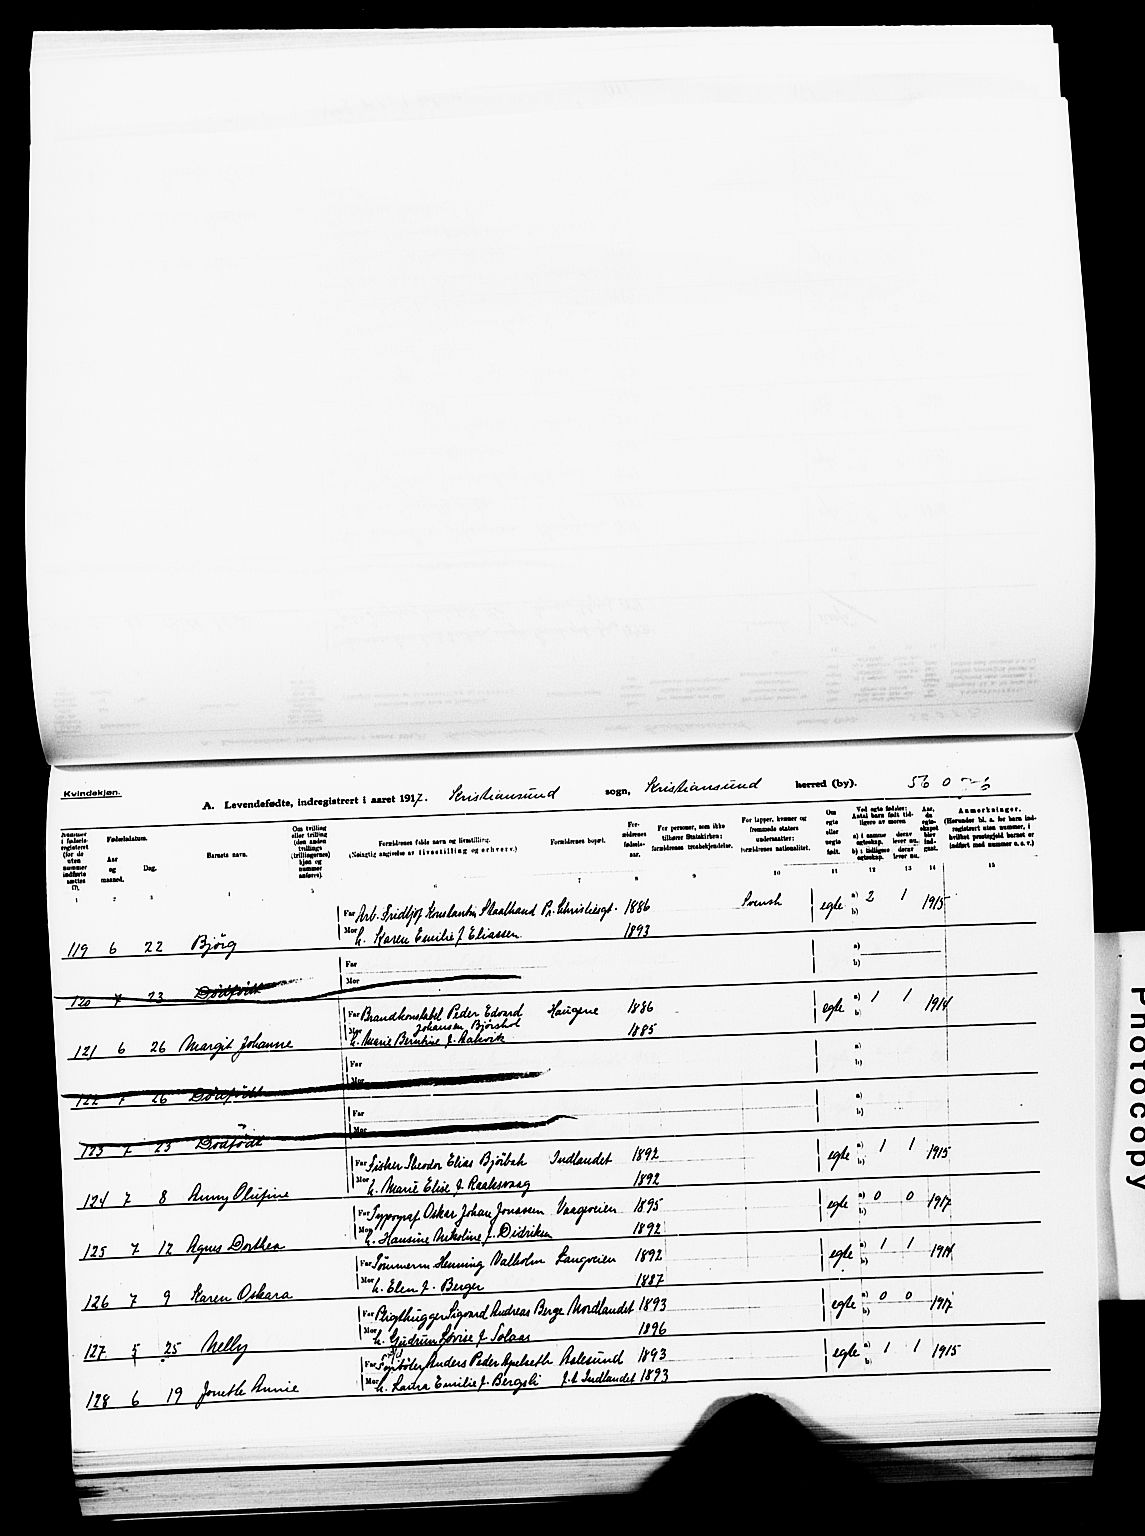 Kvindekjøn.
A. Levendefødte, indregistrert i aaret 1917. Kristiansund sogn, Kristiansund herred (by). 56 0
Nummer i fødselsregisteret (for de uten nummer indførte sættes (?).
Fødselsdatum.
Aar og maaned.
Dag.
Barnets navn.
Om tvilling eller trilling (den anden tvillings (trillingernes) kjøn og nummer anføres).
Forældrenes fulde navn og livsstilling.
(Nøiagtig angivelse av livsstilling og erhverv.)
Forældrenes bopæl.
Forældrenes fødselsaar.
For personer, som ikke tilhører Statskirken: forældrenes trosbekjendelse.
For lapper, kvæner og fremmede staters undersaatter: forældrenes nationalitet.
Om egte eller uegte født.
Ved egte fødsler: Antal barn født tidligere av moren
a) i samme egteskap. derav lever nu.
b) i tidligere egteskap. derav lever nu.
Aar, da egteskapet blev indgaat.
Anmerkninger.
(Herunder bl. a. for barn indregistrert uten nummer, i hvilket prestegjeld barnet er indført med nummer o. s. v.)
1 2 3 4 5 6 7 8 9 10 11 12 13 14 15
Far Arb. Fridtjof Konstantin Staalhand Pr. Christiesgt. 1886 Svensk egte a) 2 1 1915
119 6 22 Bjørg Mor h. Karen Emilie f. Eliassen 1893 b)
Far a)
120 7 23 Dødfødt Mor b)
Far Brandkonstabel Peder Edvard Johansen Bjørshol Haugene 1886 egte a) 1 1 1914
121 6 26 Margit Johanne Mor h. Marie Berntine f. Rakvik 1885 b)
Far a)
122 7 26 Dødfødt Mor b)
Far a)
123 7 23 Dødfødt Mor b)
Far Fisker Theodor Elias Bjørbak Indlandet 1892 egte a) 1 1 1915
124 7 8 Anny Olufine Mor h. Marie Elise f. Raaksvaag 1892 b)
Far Typograf Oskar Johan Jonassen Vaagveien 1895 egte a) 0 0 1917
125 7 12 Agnes Dorthea Mor h. Hansine Nikoline f. Didriksen 1892 b)
Far Tømmerm Henning Valholm Langveien 1892 egte a) 1 1 1914
126 7 9 Karen Oskara Mor h. Elen f. Berger 1887 b)
Far Sigvard Andreas Berge Nordlandet 1893 egte a) 0 0 1917
127 5 25 Nelly Mor h. Gudrun Lovise f. Solaas 1896 b)
Far Anders Peder Apelseth Aalesund 1893 egte a) 1 1 1915
128 6 19 Jonette Annie Mor h. Laura Emilie f. Bergsli f. t. Indlandet 1893 b)
Photocopy